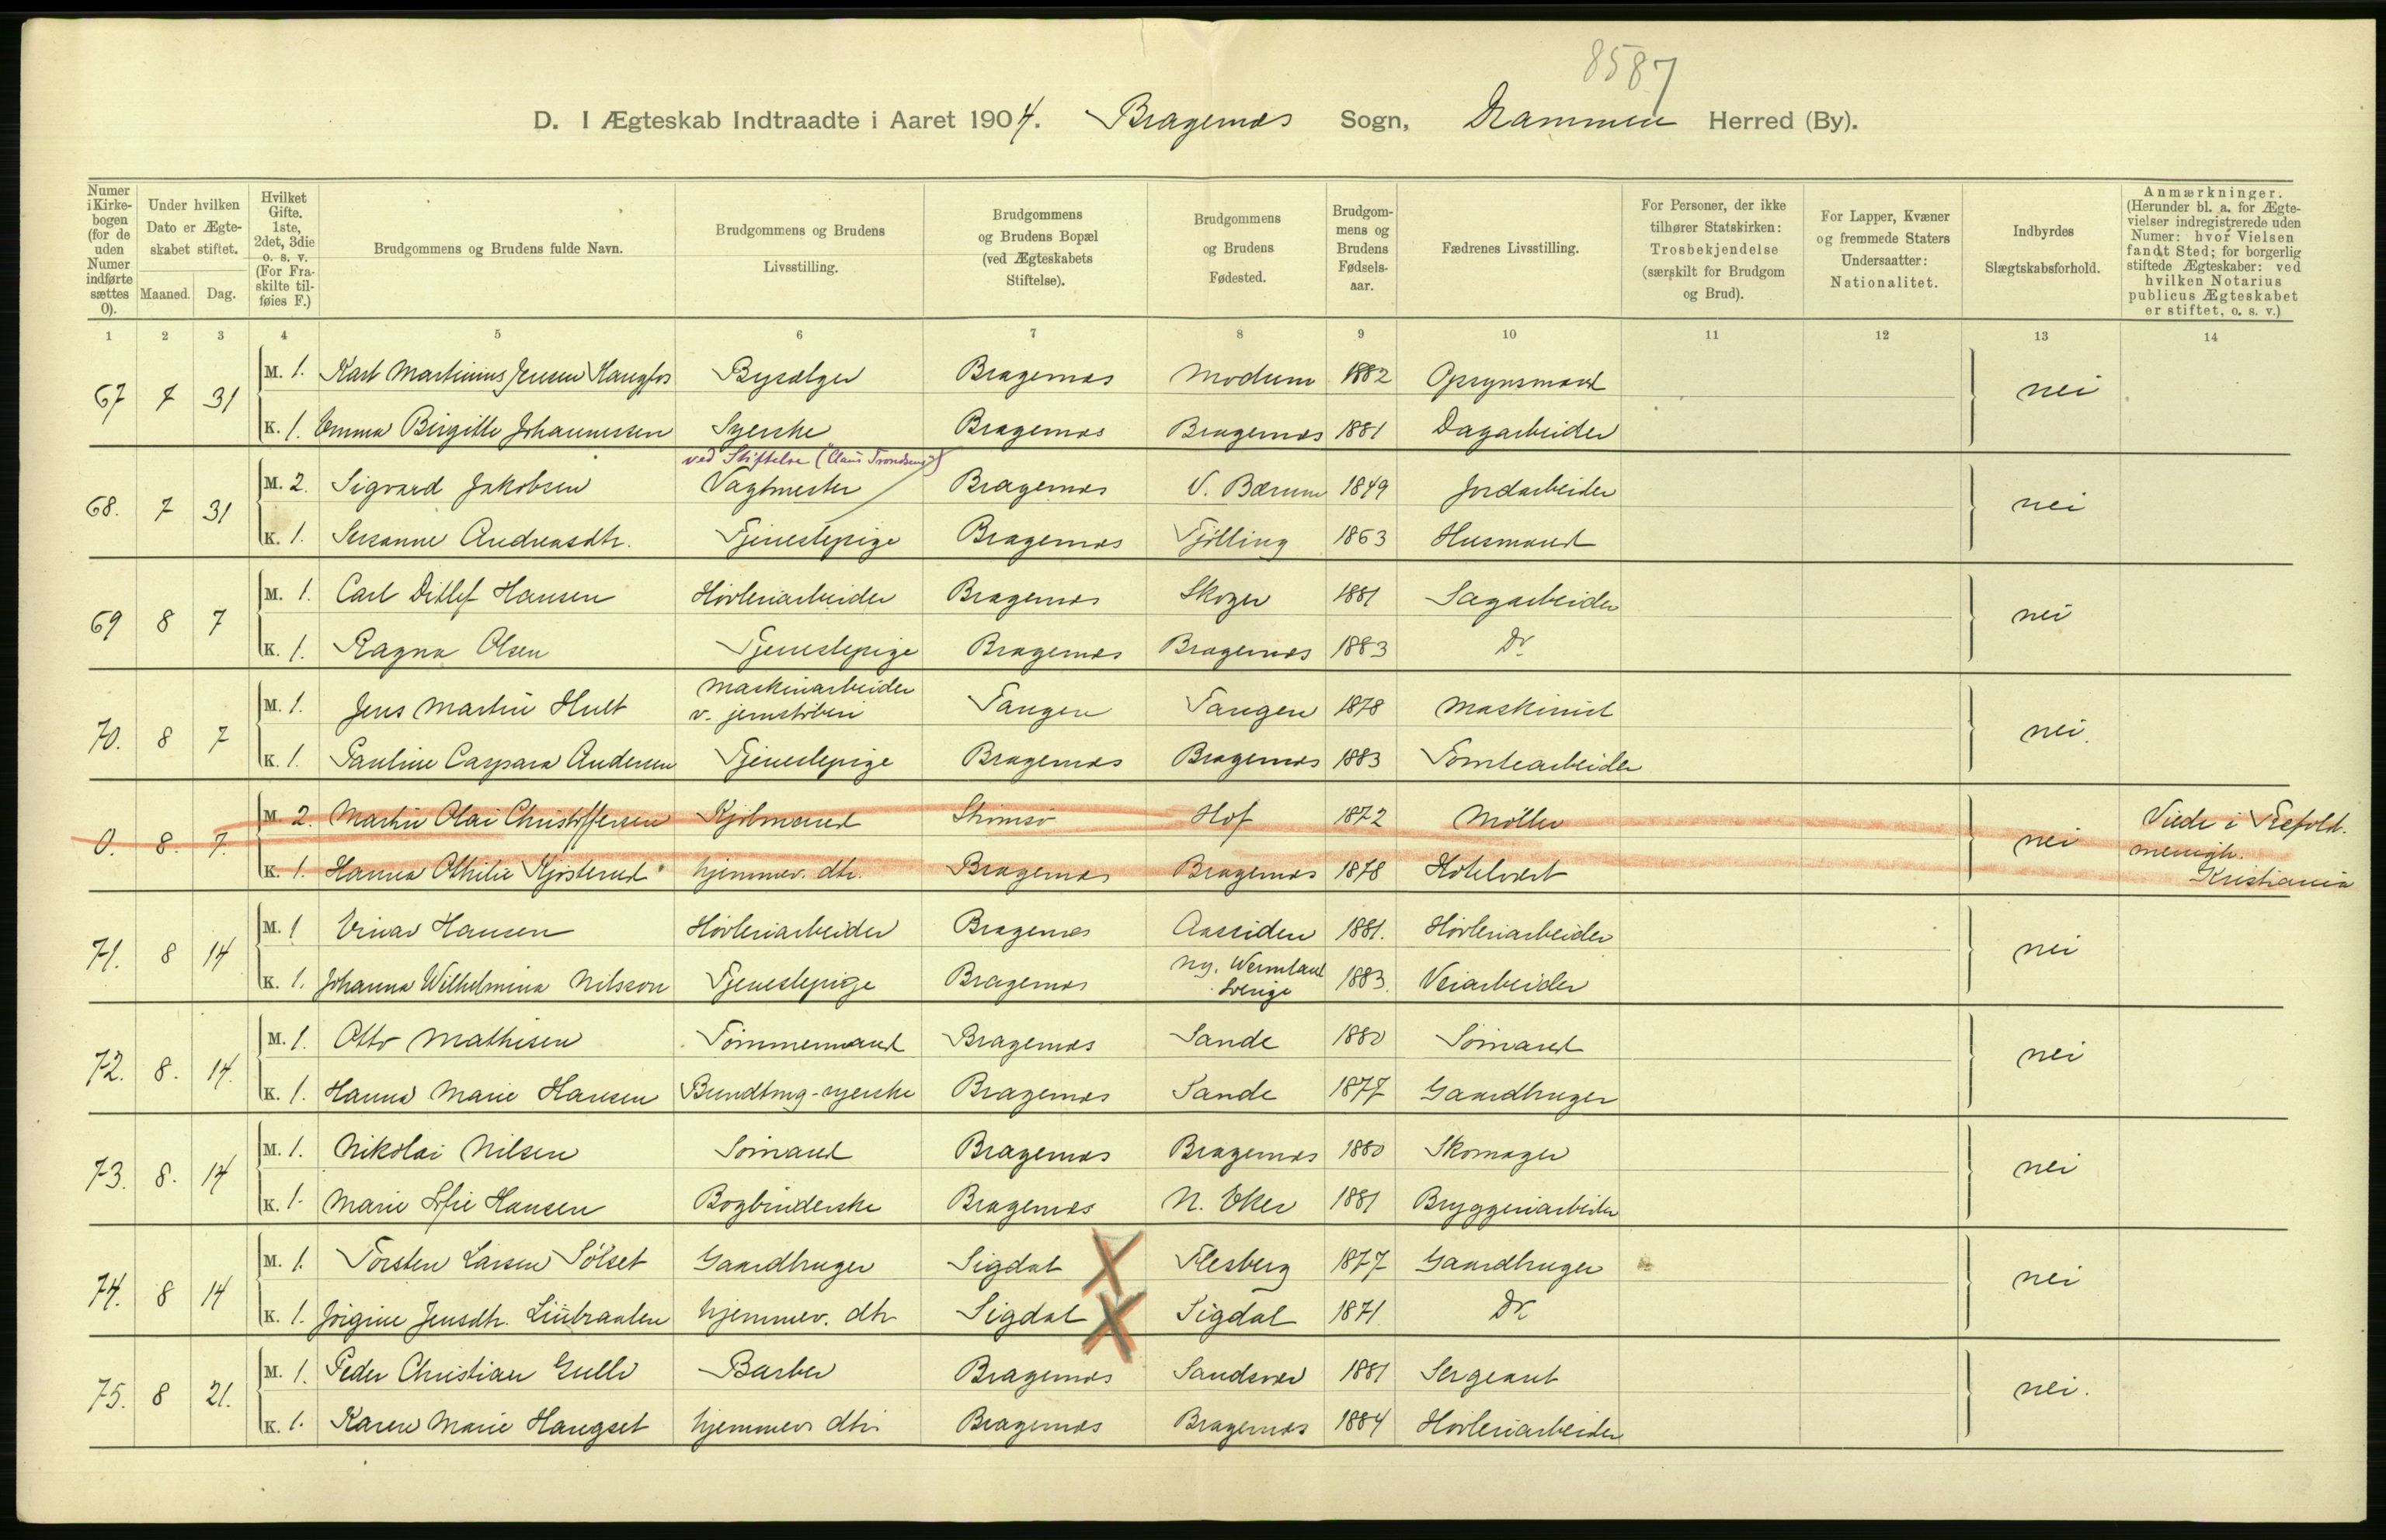 8587
D. I Ægteskab Indtraadte i Aaret 1904. Bragernæs Sogn, Drammen Herred (By).
Numer i Kirkebogen (for de uden Numer indførte sættes 0).
Under hvilken Dato er Ægteskabet stiftet.
Maaned. Dag.
Hvilket Gifte. 1ste, 2det, 3die o. s. v. (For Fraskilte tilføies F.)
Brudgommens og Brudens fulde Navn.
Brudgommens og Brudens Livsstilling.
Brudgommens og Brudens Bopæl (ved Ægteskabets Stiftelse).
Brudgommens og Brudens Fødested.
Brudgommens og Brudens Fødselsaar.
Fædrenes Livsstilling.
For Personer, der ikke tilhører Statskirken: Trosbekjendelse (særskilt for Brudgom og Brud).
For Lapper, Kvæner og fremmede Staters Undersaatter: Nationalitet.
Indbyrdes Slægtskabsforhold.
Anmærkninger. (Herunder bl. a. for Ægtevielser indregistrerede uden Numer: hvor Vielsen fandt Sted; for borgerlig stiftede Ægteskaber: ved hvilken Notarius publicus Ægteskabet er stiftet, o. s. v.)
1 2 3 4 5 6 7 8 9 10 11 12 13 14
67 7 31 M. 1. Karl Martinius Jensen Haugfos Bysælger Bragernæs Modum 1882 Opsynsmand nei
K. 1. Emma Birgitte Johannessen Syerske Bragernæs Bragernæs 1881 Dagarbeider
ved Stiftelse (Claus Trondsens)
68. 7 31 M. 2. Sigvard Jakobsen Vagtmester Bragernæs V. Bærum 1849 Jordarbeider nei
K. 1. Susanne Andreasdtr. Tjenestepige Bragernæs Tjölling 1863 Husmand
69 8 7 M. 1. Carl Ditlef Hansen Hövleriarbeider Bragernæs Skoger 1881 Sagarbeider nei
K. 1. Ragna Olsen Tjenestepige Bragernæs Bragernæs 1883 Do
70. 8 7 M. 1. Jens Martin Hult Maskinarbeider v. jernstöberi Tangen Tangen 1878 Maskinist nei.
K. 1. Pauline Caspara Andersen Tjenestepige Bragernæs Bragernæs 1883 Tomtearbeider
0. 8. 7. M. 2. Martin Olai Christoffersen Kjöbmand Strömsö Hof 1872 Möller nei Viede i Trefold. menigh. Kristiania
K. 1. Hanna Othilie Kjösterud hjemmev. dtr. Bragernæs Bragernæs 1878 Hotelvert
71. 8 14 M. 1 Einar Hansen Hövleriarbeider Bragernæs Aassiden 1881. Hövleriarbeider nei
K. 1. Johanna Wilhelmina Nilsson Tjenestepige Bragernæs Ny, Wermland Sverige 1883. Veiarbeider
72. 8. 14. M. 1. Otto Mathisen Tömmermand Bragernæs Sande 1880 Sömand nei
K. 1. Hanna Marie Hansen Bundtmg-syerske Bragernæs Sande 1877 Gaardbruger
73. 8. 14 M. 1. Nikolai Nilsen Sömand Bragernæs Bragernæs 1880 Skomager nei
K. 1. Marie Sofie Hansen Bogbinderske Bragernæs N. Eker 1881 Bryggeriarbeider
74. 8 14 M. 1. Torsten Larsen Sölset Gaardbruger Sigdal X Flesberg 1877 Gaardbruger nei
K. 1. Jörgine Jensdtr. hjemmev. dtr Sigdal X Sigdal 1871. Do
75. 8 21. M. 1. Peder Christian Barber Bragernæs Sandsvær 1881 Sergeant nei.
K. 1. Karen Marie Haugset hjemmev dtr. Bragernæs Bragernæs 1884 Hövleriarbeider